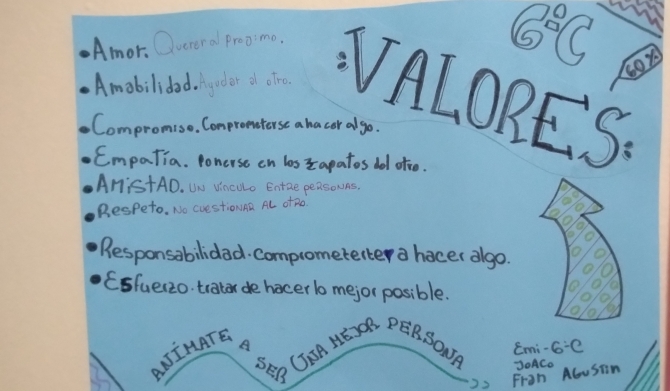 6ºC
60%
:VALORES:
•Amor. Querer al progimo.
•Amabilidad. Ayudar al otro.
•Compromiso. Comprometerse a hacer algo.
•Empatía. Ponerse en los zapatos del otro.
•AMiStAD. UN VíNCULO ENtRE PERSONAS.
•Respeto. NO CUESTIONAR AL OtRO.
•Responsabilidad. Comprometerter a hacer algo.
•Esfuerzo. tratar de hacerlo mejor posible.
ANÍMATE A SER UNA MEJOR PERSONA
Emi-6ºC
JOACO
Fran AGUStIN